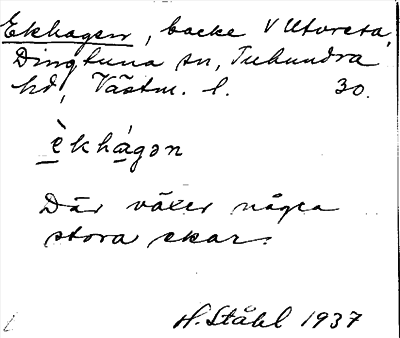 Ekhagen, backe V Utoresta,
Dingtuna sn, Tuhundra
hd, Västm. l. 30.
èkhágən
Där växer några
stora ekar.
H. Ståhl 1937